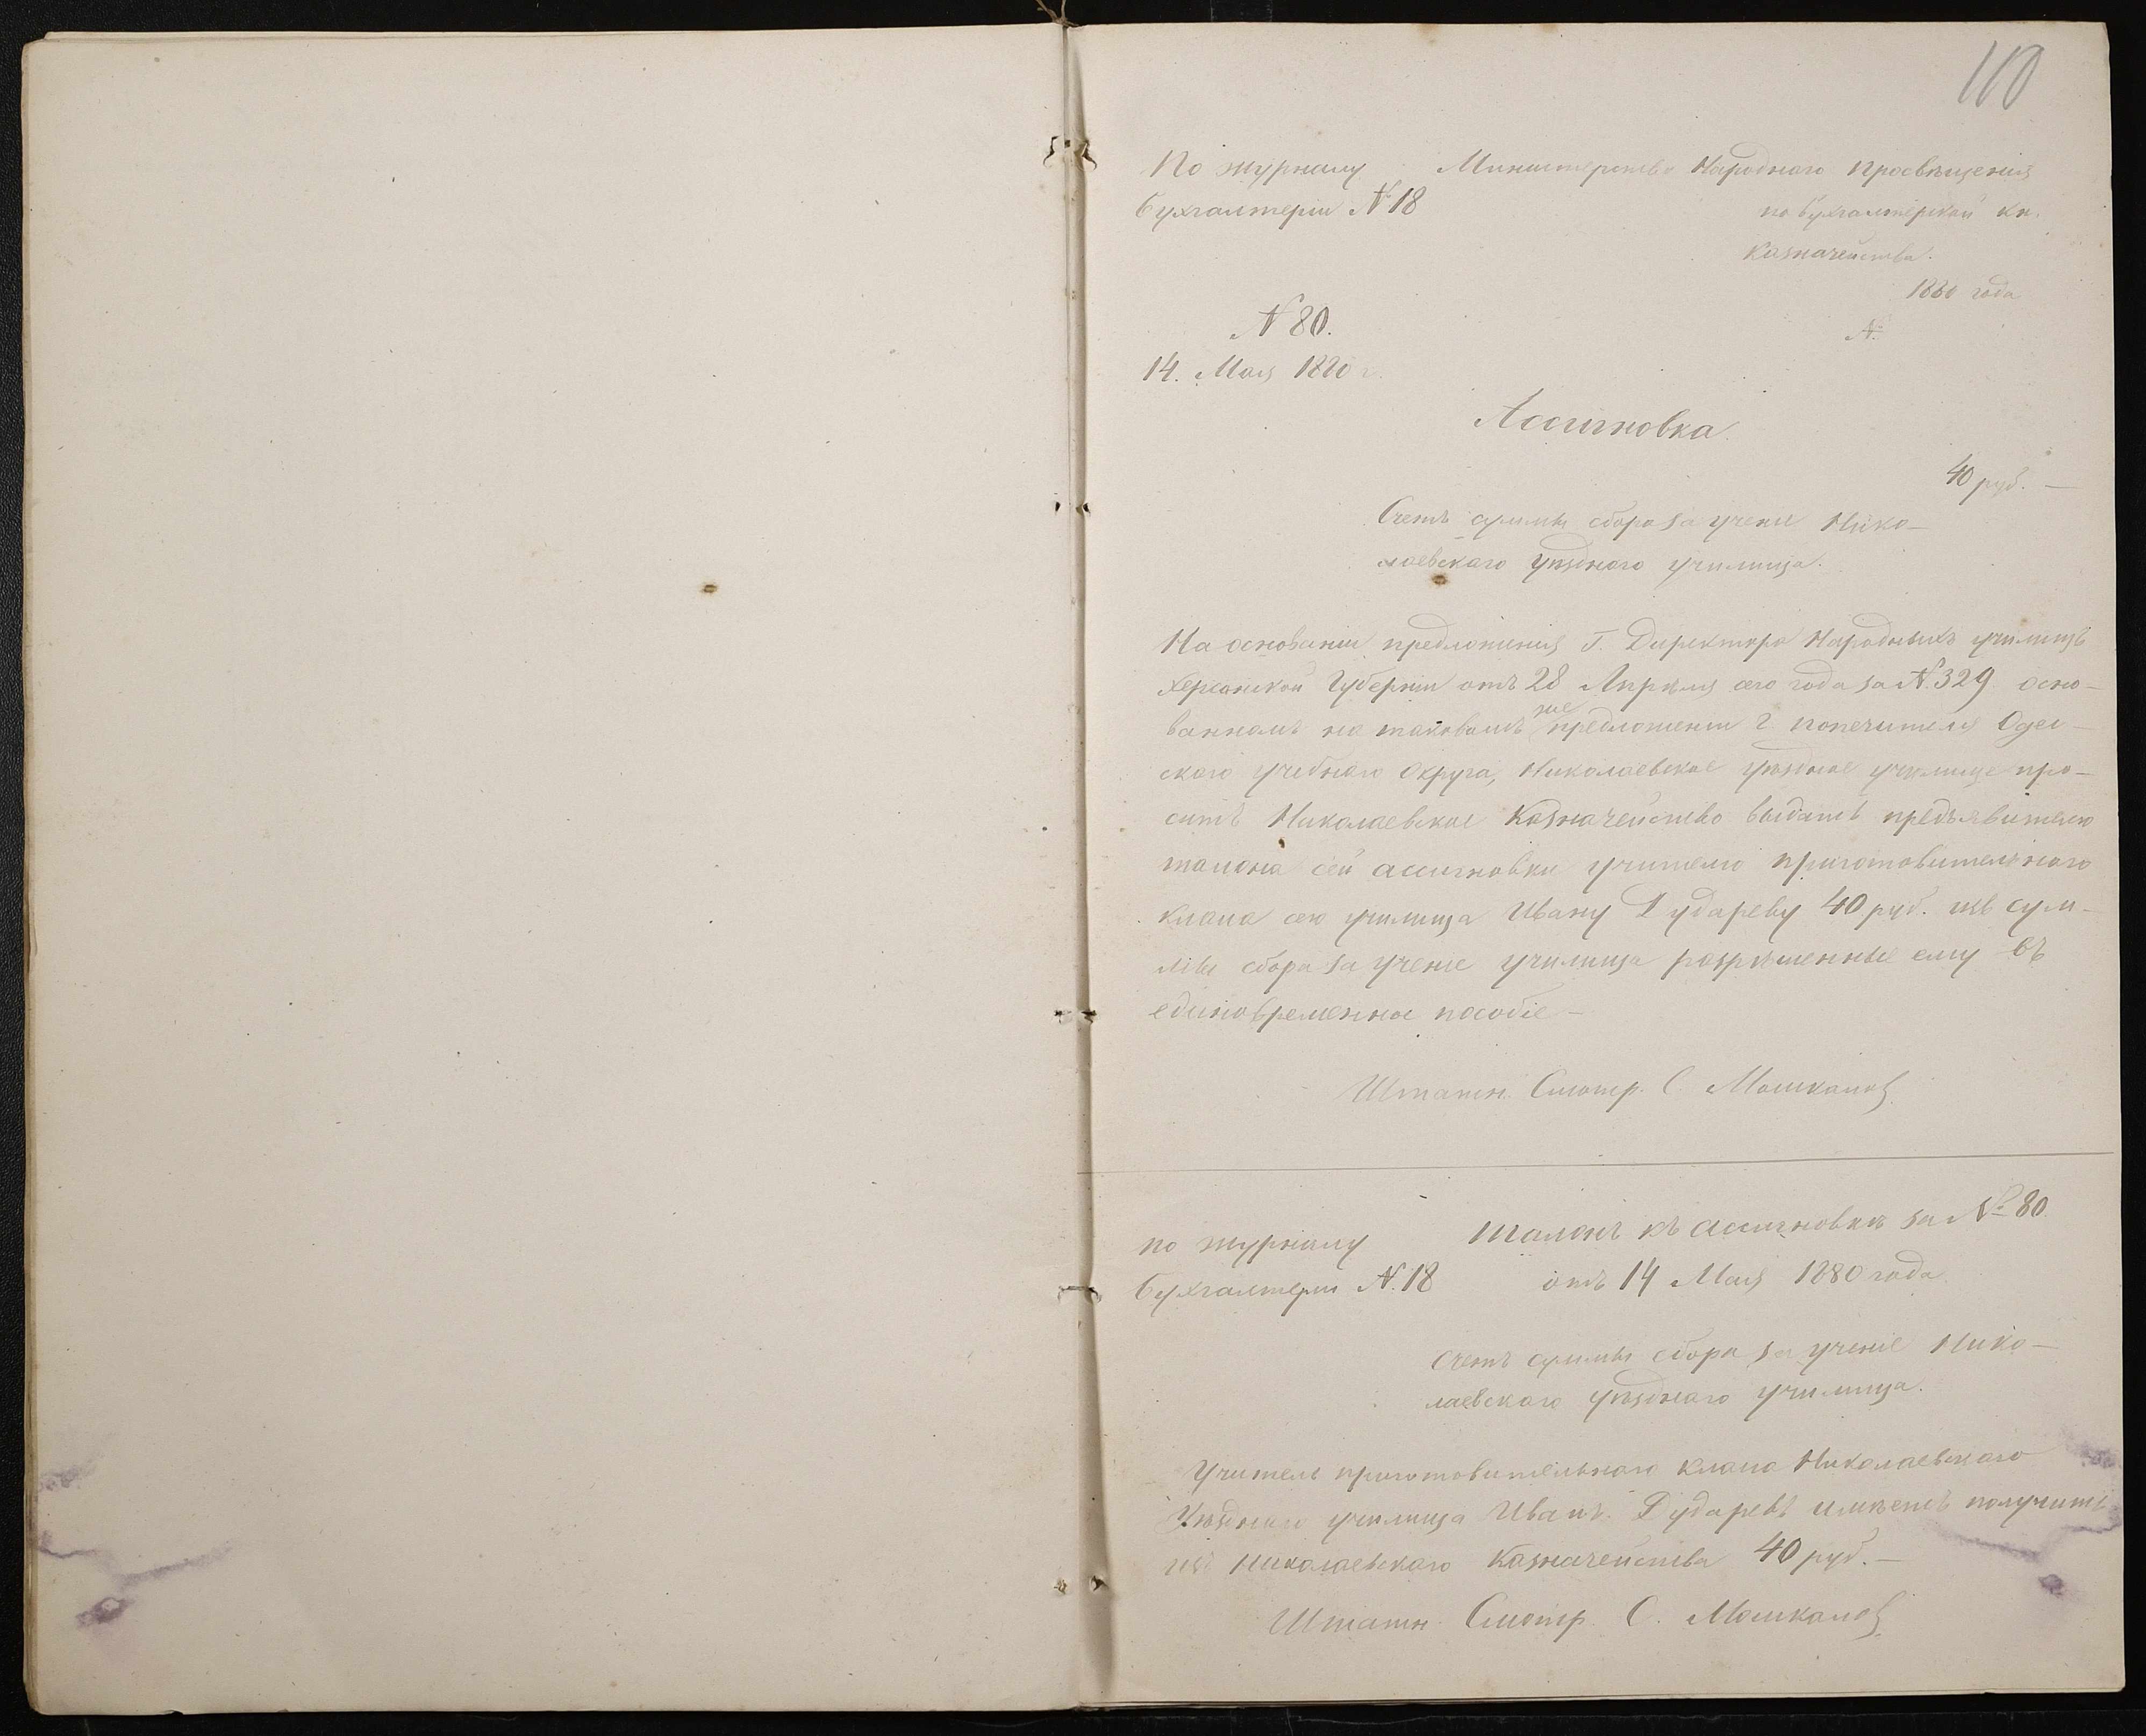 110
По журналу
бухгалтеріи № 18
Министерство Народнаго Просвѣщенія
по бухгалтерской кн.
Казначейства.
1880 года
№
№ 80.
14. Мая 1880 г.
Ассигновка
40 руб. —
Счетъ суммы сбора за ученіе Нико-
лаевскаго уѣзднаго училища.
На основаніи предложенія Г. Директора Народныхъ училищъ
Херсонской Губерніи отъ 28 Апрѣля сего года за № 329 осно-
ванномъ на таковомъ же предложеніи г. попечителя Одес-
скаго учебнаго Округа, Николаевское уѣздное училище про-
ситъ Николаевское Казначейство выдать предъявителю
талона сей ассигновки учителю приготовительнаго
класса сего училища Ивану Дудареву 40 руб. изъ сум-
мы сбора за ученіе училища разрѣшенные ему въ
единовременное пособіе —
Штатн. Смотр. С.
По журналу
бухгалтеріи № 18
Талонъ къ ассигновкѣ за № 80
отъ 14 Мая 1880 года
Счетъ суммы сбора за ученіе Нико-
лаевскаго уѣзднаго училища.
Учитель приготовительнаго класса Николаевскаго
Уѣзднаго училища Иванъ Дударевъ имѣетъ получить
изъ Николаевскаго Казначейства 40 руб. —
Штатн. Смотр. С.